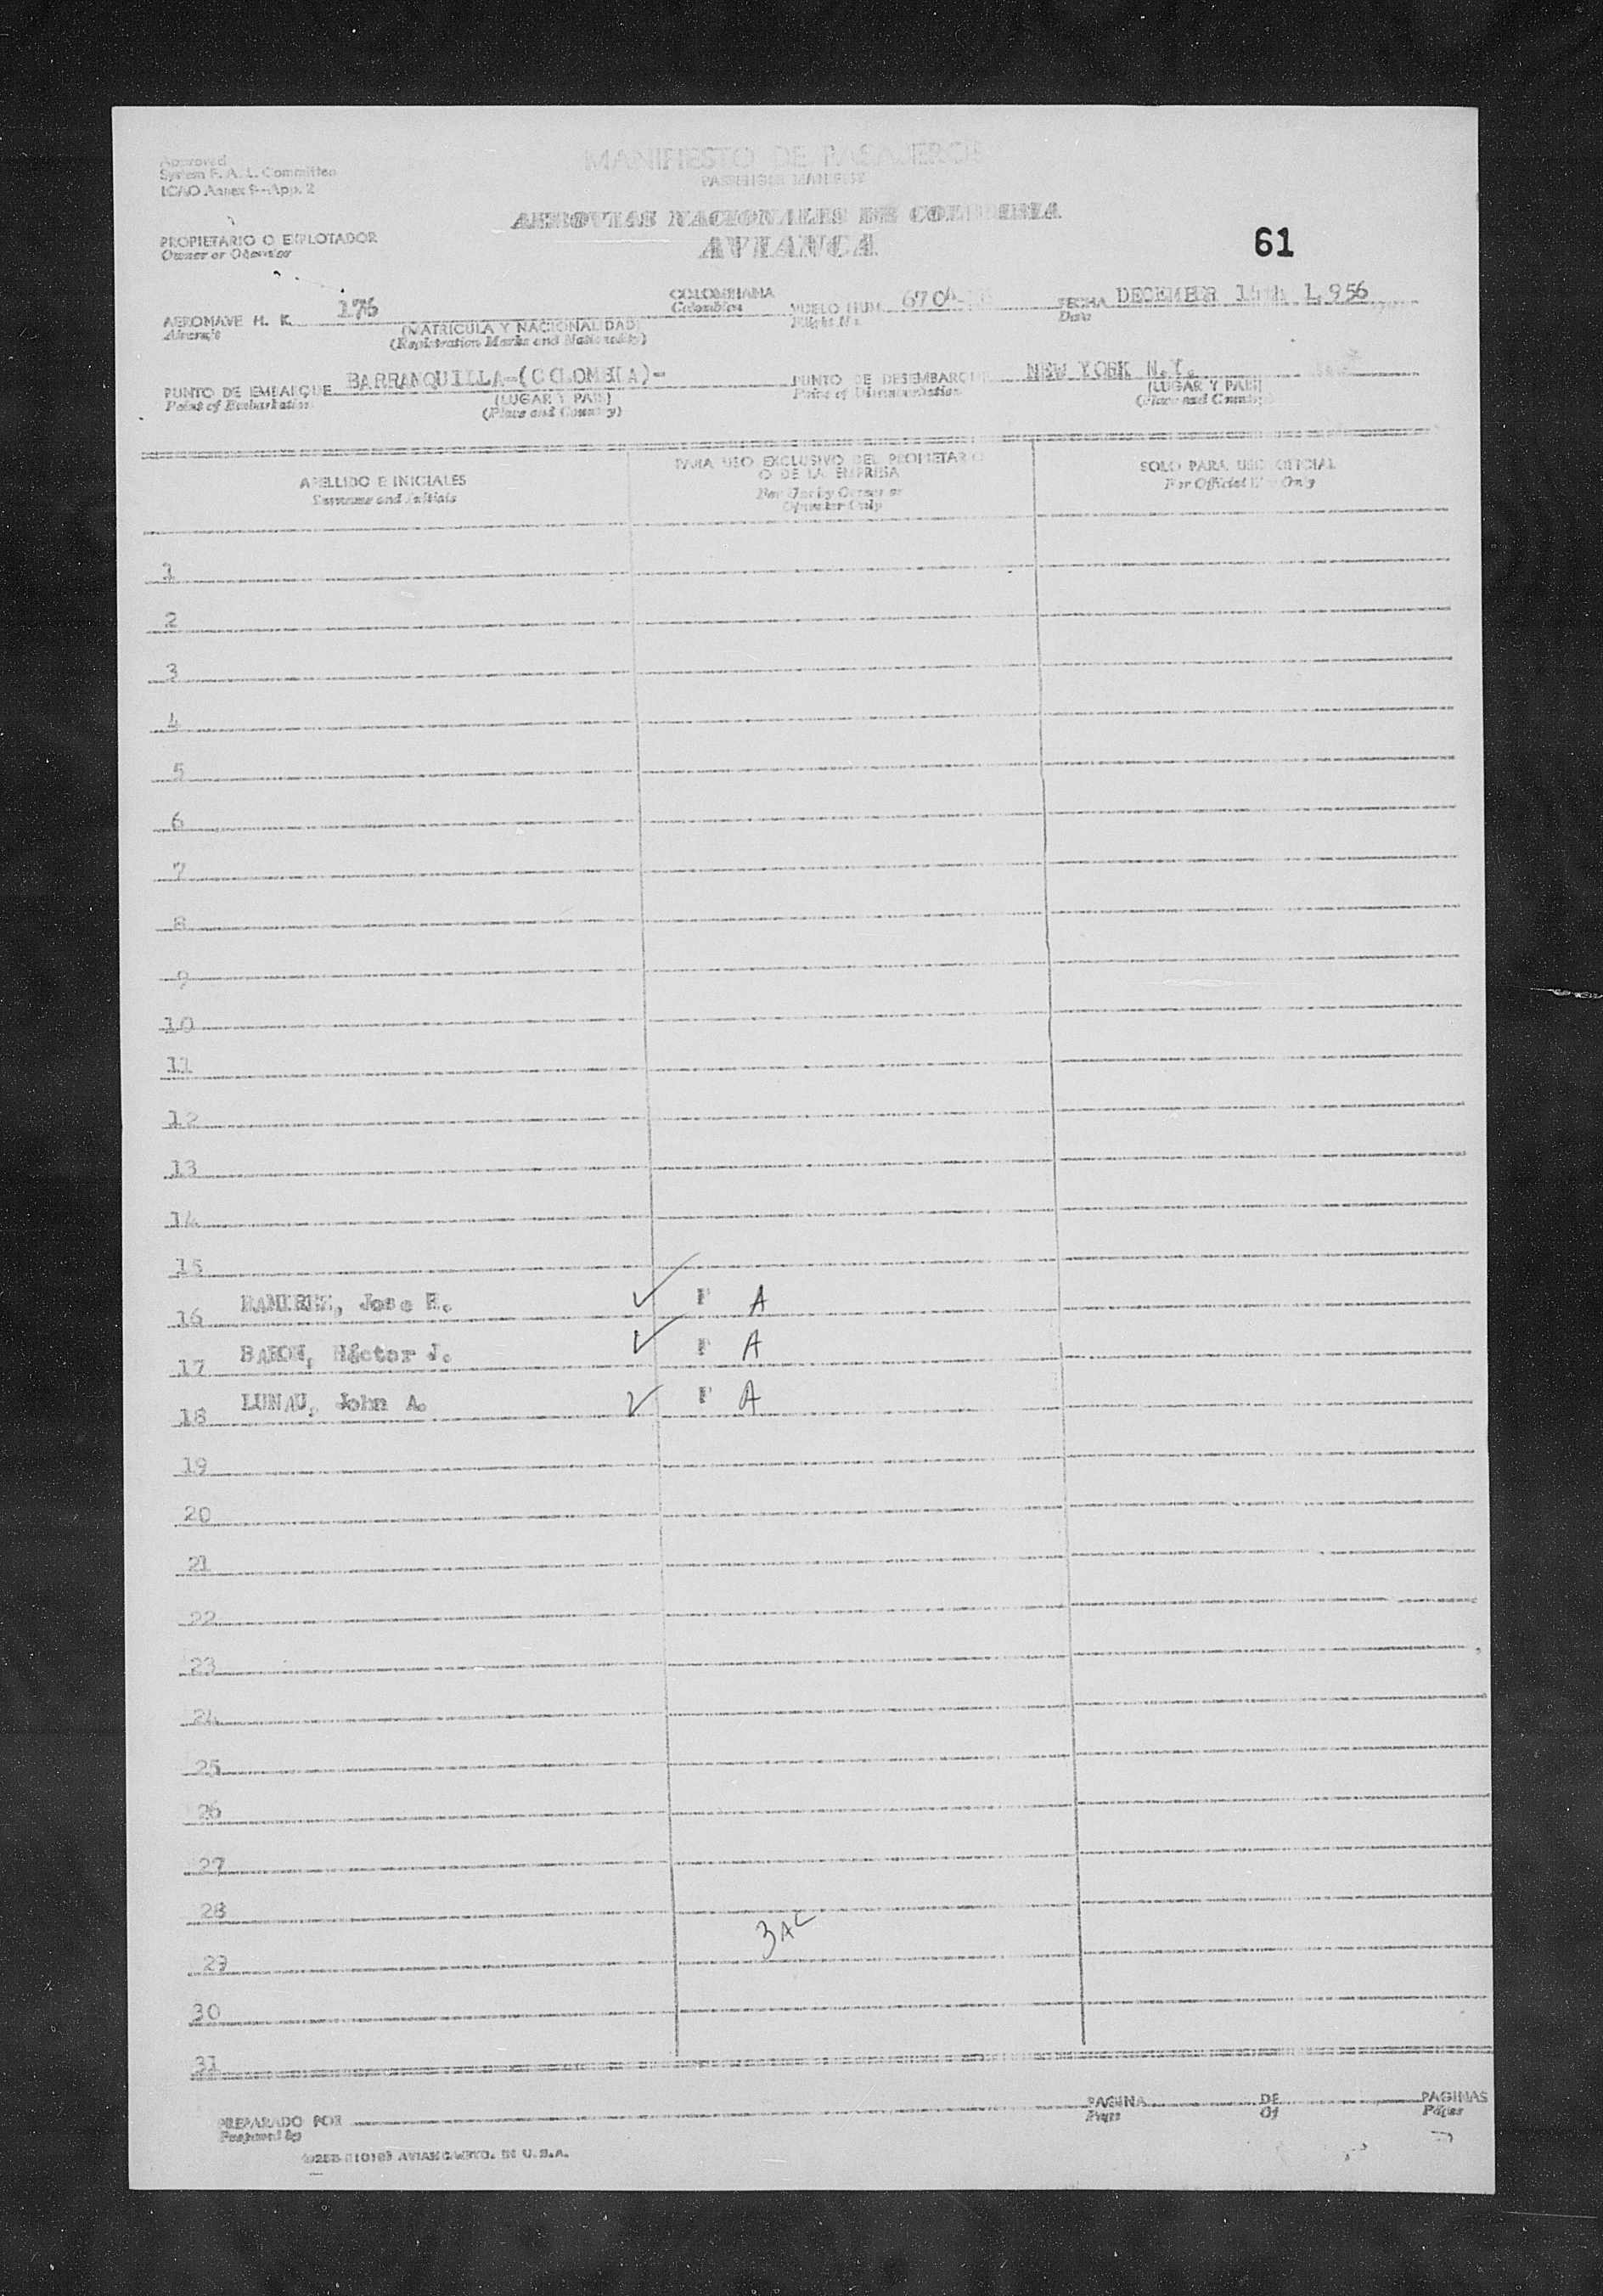 Approved
System F. A. L. Committee
ICAO Annex 9-App. 2
MANIFIESTO DE PASAJEROS
PASSENGER MANIFEST
AEROVIAS NACIONALES DE COLOMBIA
AVIANCA
61
PROPIETARIO O EXPLOTADOR
Owner or Operator
AERONAVE H. K. 176 COLOMBIANA VUELO NUM. 670 FECHA DECEMBER 1,956
Aircraft Colombian Flight No. Date
(MATRICULA Y NACIONALIDAD)
(Registration Marks and Nationality)
PUNTO DE EMBARQUE BARRANQUILLA-(COLOMBIA)- PUNTO DE DESEMBARQUE NEW YORK N.Y.
Point of Embarkation (LUGAR Y PAIS) Point of Disembarkation (LUGAR Y PAIS)
(Place and Country) (Place and Country)
APELLIDO E INICIALES
Surname and Initials
PARA USO EXCLUSIVO DEL PROPIETARIO
O DE LA EMPRESA
For Use by Owner or
Operator Only
SOLO PARA USO OFICIAL
For Official Use Only
1
2
3
4
5
6
7
8
9
10
11
12
13
14
15
16 RAMIREZ, Jose E. F A
17 BARON, Héctor J. F A
18 LUNAU, John A. F A
19
20
21
22
23
24
25
26
27
28
3 AC
29
30
31
PREPARADO POR PAGINA DE PAGINAS
Prepared by Page Of Pages
AVIANCA U.S.A.